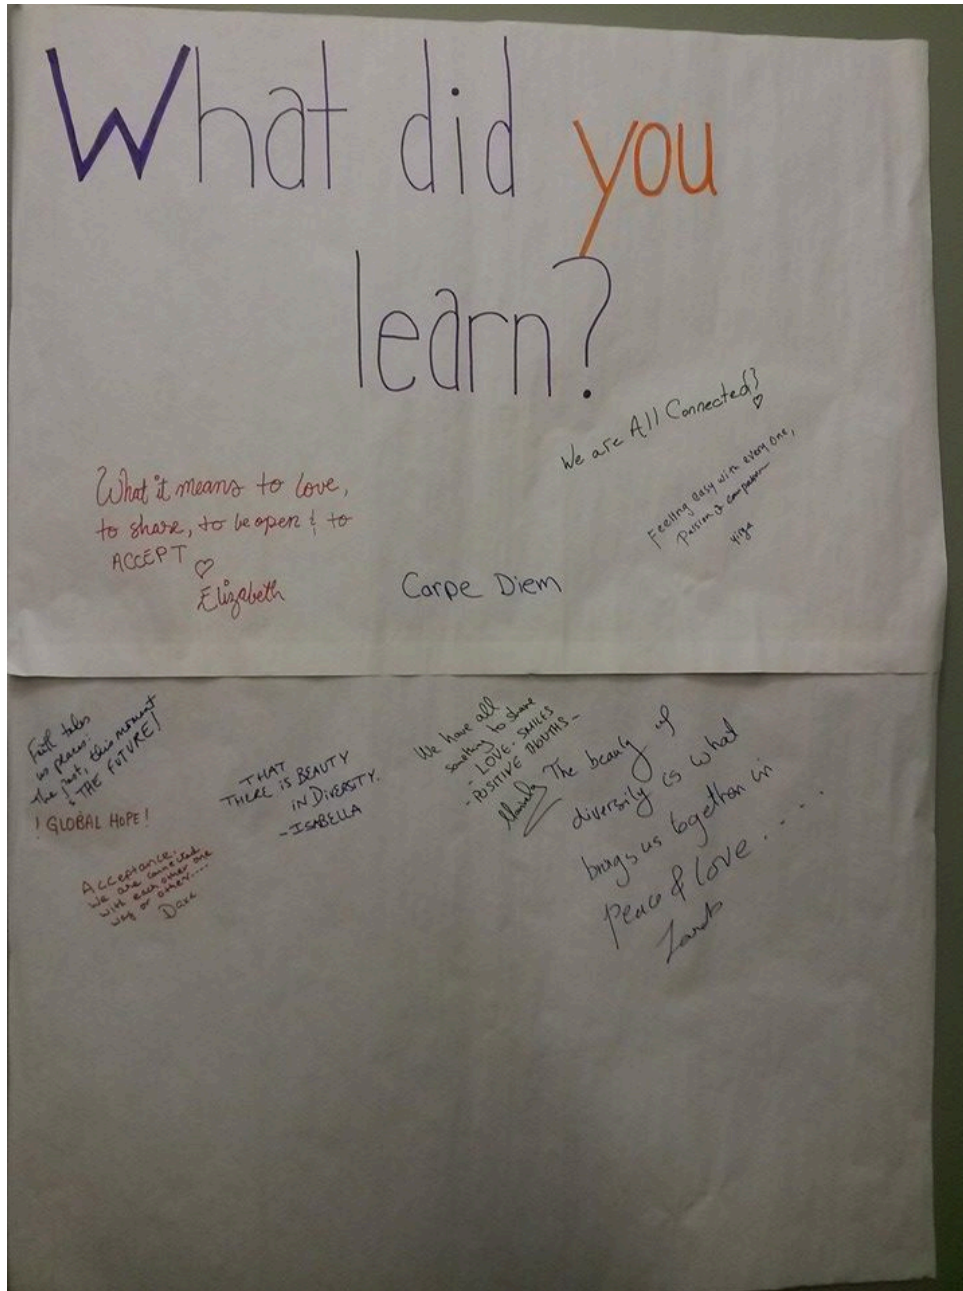 What did you
learn?
We are All Connected!
Feeling easy with every one,
Passion & compassion
What it means to love,
to share, to be open & to
ACCEPT
Elizabeth
Carpe Diem
Faith takes
us places:
The past, this moment
& THE FUTURE!
! GLOBAL HOPE!
THAT
THERE IS BEAUTY
IN DIVERSITY.
-ISABELLA
We have all
something to share
- LOVE - SMILES
- POSITIVE THOUTHS -
The beauty of
diversity is what
brings us together in
Peace & Love....
Acceptance.
We are connected
with each other one
way or other....
Dave